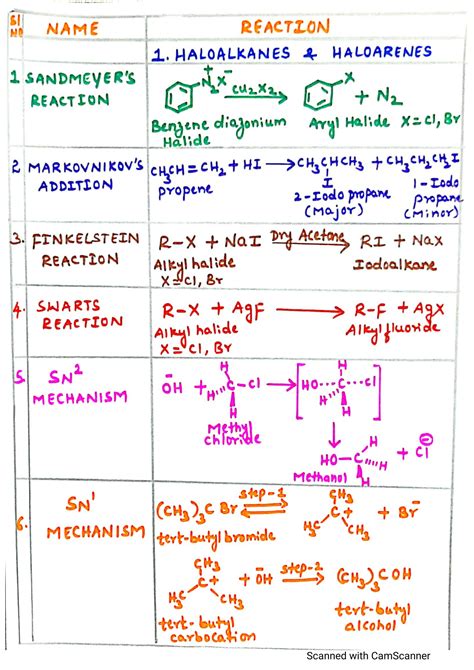 Sl No NAME REACTION
1. HALOALKANES & HALOARENES
1 SANDMEYER'S REACTION
N2+X- Cu2X2 → X + N2
Benzene diazonium Halide
Aryl Halide X=Cl, Br
2 MARKOVNIKOV'S ADDITION
CH3CH=CH2 + HI → CH3CHCH3 + CH3CH2CH2I
I
propene
2-Iodo propane (Major)
1-Iodo propane (Minor)
3. FINKELSTEIN REACTION
R-X + NaI Dry Acetone → RI + NaX
Alkyl halide
X=Cl, Br
Iodoalkane
4. SWARTS REACTION
R-X + AgF → R-F + AgX
Alkyl halide
X=Cl, Br
Alkyl fluoride
5. SN2 MECHANISM
ŌH + H H C-Cl H → [HO---C---Cl H H H]
Methyl chloride
HO-C H H H + Cl⊖
Methanol
6. SN1 MECHANISM
(CH3)3CBr step-1 ⇌ CH3 C+ H3C CH3 + Br-
tert-butyl bromide
CH3 C+ H3C CH3 + ŌH step-2 → (CH3)3COH
tert-butyl carbocation
tert-butyl alcohol
Scanned with CamScanner